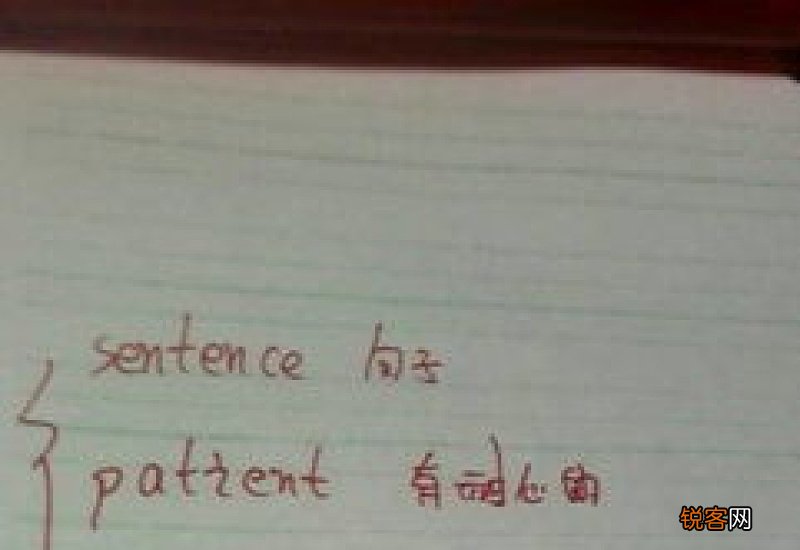 sentence 句子
patient 有耐心的
锐客网